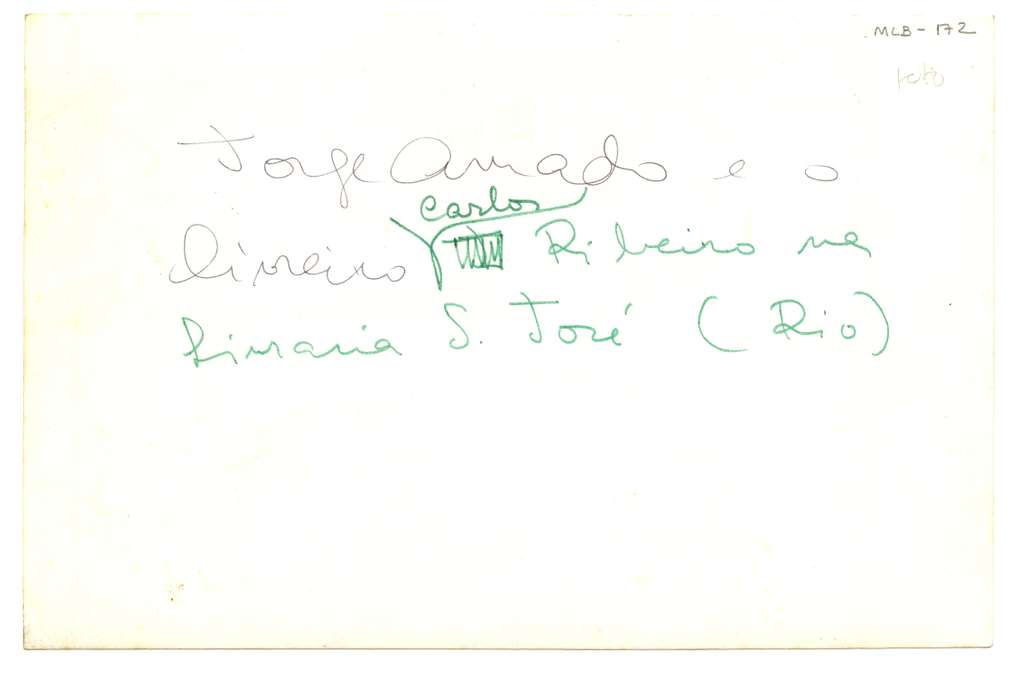 MLB - 172
foto
Jorge Amado e o
livreiro Carlos Ribeiro na
livraria S. José (Rio)